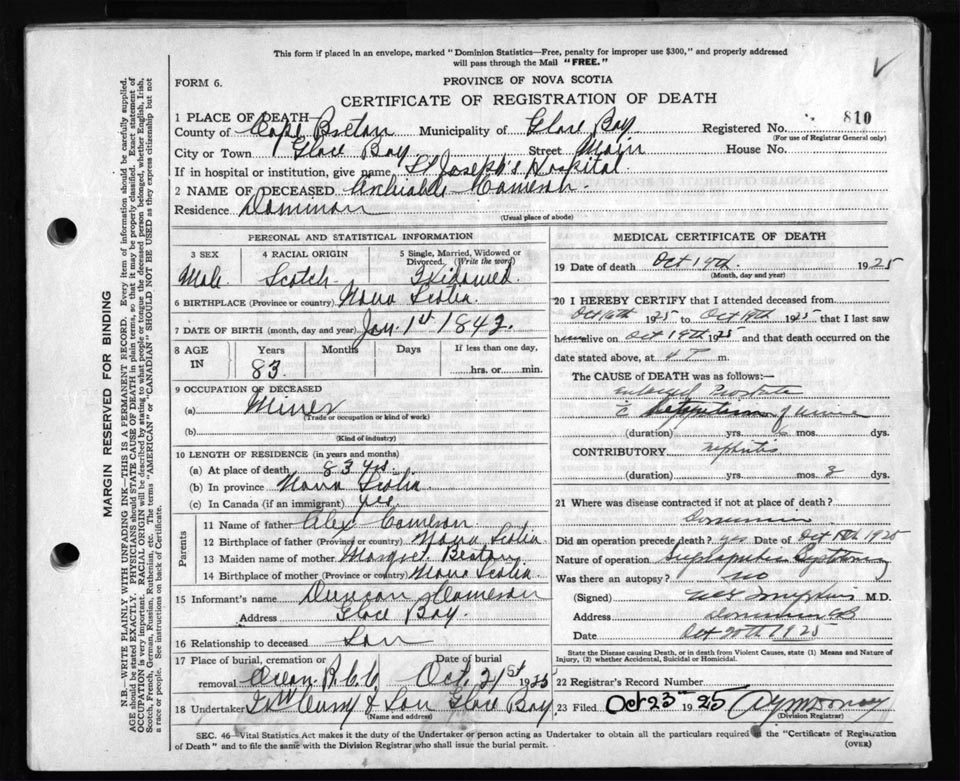 This form if placed in an envelope, marked "Dominion Statistics—Free, penalty for improper use $300," and properly addressed
will pass through the Mail "FREE."
FORM 6.
PROVINCE OF NOVA SCOTIA
CERTIFICATE OF REGISTRATION OF DEATH
1 PLACE OF DEATH
County of Cape Breton Municipality of Glace Bay Registered No. 810
(For use of Registrar General only)
City or Town Glace Bay Street Main House No.
If in hospital or institution, give name St Joseph's Hospital
2 NAME OF DECEASED Cameron
Residence Dominion
(Usual place of abode)
PERSONAL AND STATISTICAL INFORMATION
3 SEX 4 RACIAL ORIGIN 5 Single, Married, Widowed or Divorced, (Write the word)
Male Scotch Widowed
6 BIRTHPLACE (Province or country) Nova Scotia
7 DATE OF BIRTH (month, day and year) Jan. 1st 1842
8 AGE IN Years Months Days If less than one day,
83 hrs. or min.
9 OCCUPATION OF DECEASED
(a) Miner
(Trade, occupation or kind of work)
(b)
(Kind of industry)
10 LENGTH OF RESIDENCE (in years and months)
(a) At place of death 83 yrs.
(b) In province Nova Scotia
(c) In Canada (if an immigrant) yes
Parents
11 Name of father Alex Cameron
12 Birthplace of father (Province or country) Nova Scotia
13 Maiden name of mother Margret Beaton
14 Birthplace of mother (Province or country) Nova Scotia
15 Informant's name Duncan Cameron
Address Glace Bay
16 Relationship to deceased Son
17 Place of burial, cremation or removal Date of burial
R.C.C. Oct. 21st 1925
18 Undertaker & Son Glace Bay
(Name and address)
MEDICAL CERTIFICATE OF DEATH
19 Date of death Oct 19th 1925
(Month, day and year)
20 I HEREBY CERTIFY that I attended deceased from
Oct 16th 1925 to Oct 19th 1925 that I last saw
him alive on Oct 19th 1925 and that death occurred on the
date stated above, at 4 P m.
The CAUSE of DEATH was as follows:—
enlarged Prostate
c of urine
(duration) yrs. mos. dys.
CONTRIBUTORY nephritis
(duration) yrs. mos 8 dys.
21 Where was disease contracted if not at place of death?
Dominion
Did an operation precede death? yes Date of Oct 18th 1925
Nature of operation Suprapubic
Was there an autopsy? no
(Signed) M.D.
Address Dominion CB
Date Oct 20th 1925
State the Disease causing Death, or in death from Violent Causes, state (1) Means and Nature of Injury, (2) whether Accidental, Suicidal or Homicidal.
22 Registrar's Record Number
23 Filed Oct 23 1925
(Division Registrar)
SEC. 46—Vital Statistics Act makes it the duty of the Undertaker or person acting as Undertaker to obtain all the particulars required in the "Certificate of Registration
of Death" and to file the same with the Division Registrar who shall issue the burial permit. (OVER)
MARGIN RESERVED FOR BINDING
N.B.—WRITE PLAINLY WITH UNFADING INK—THIS IS A PERMANENT RECORD. Every item of information should be carefully supplied.
AGE should be stated EXACTLY. PHYSICIANS should STATE CAUSE OF DEATH in plain terms, so that it may be properly classified. Exact statement of
OCCUPATION is very important. RACIAL ORIGIN will be described by stating to what people or tongue the deceased person belonged, whether English, Irish,
Scotch, French, German, Russian, Ruthenian, etc. The terms "AMERICAN" or "CANADIAN" SHOULD NOT BE USED as they express citizenship but not
a race or people. See instructions on back of Certificate.